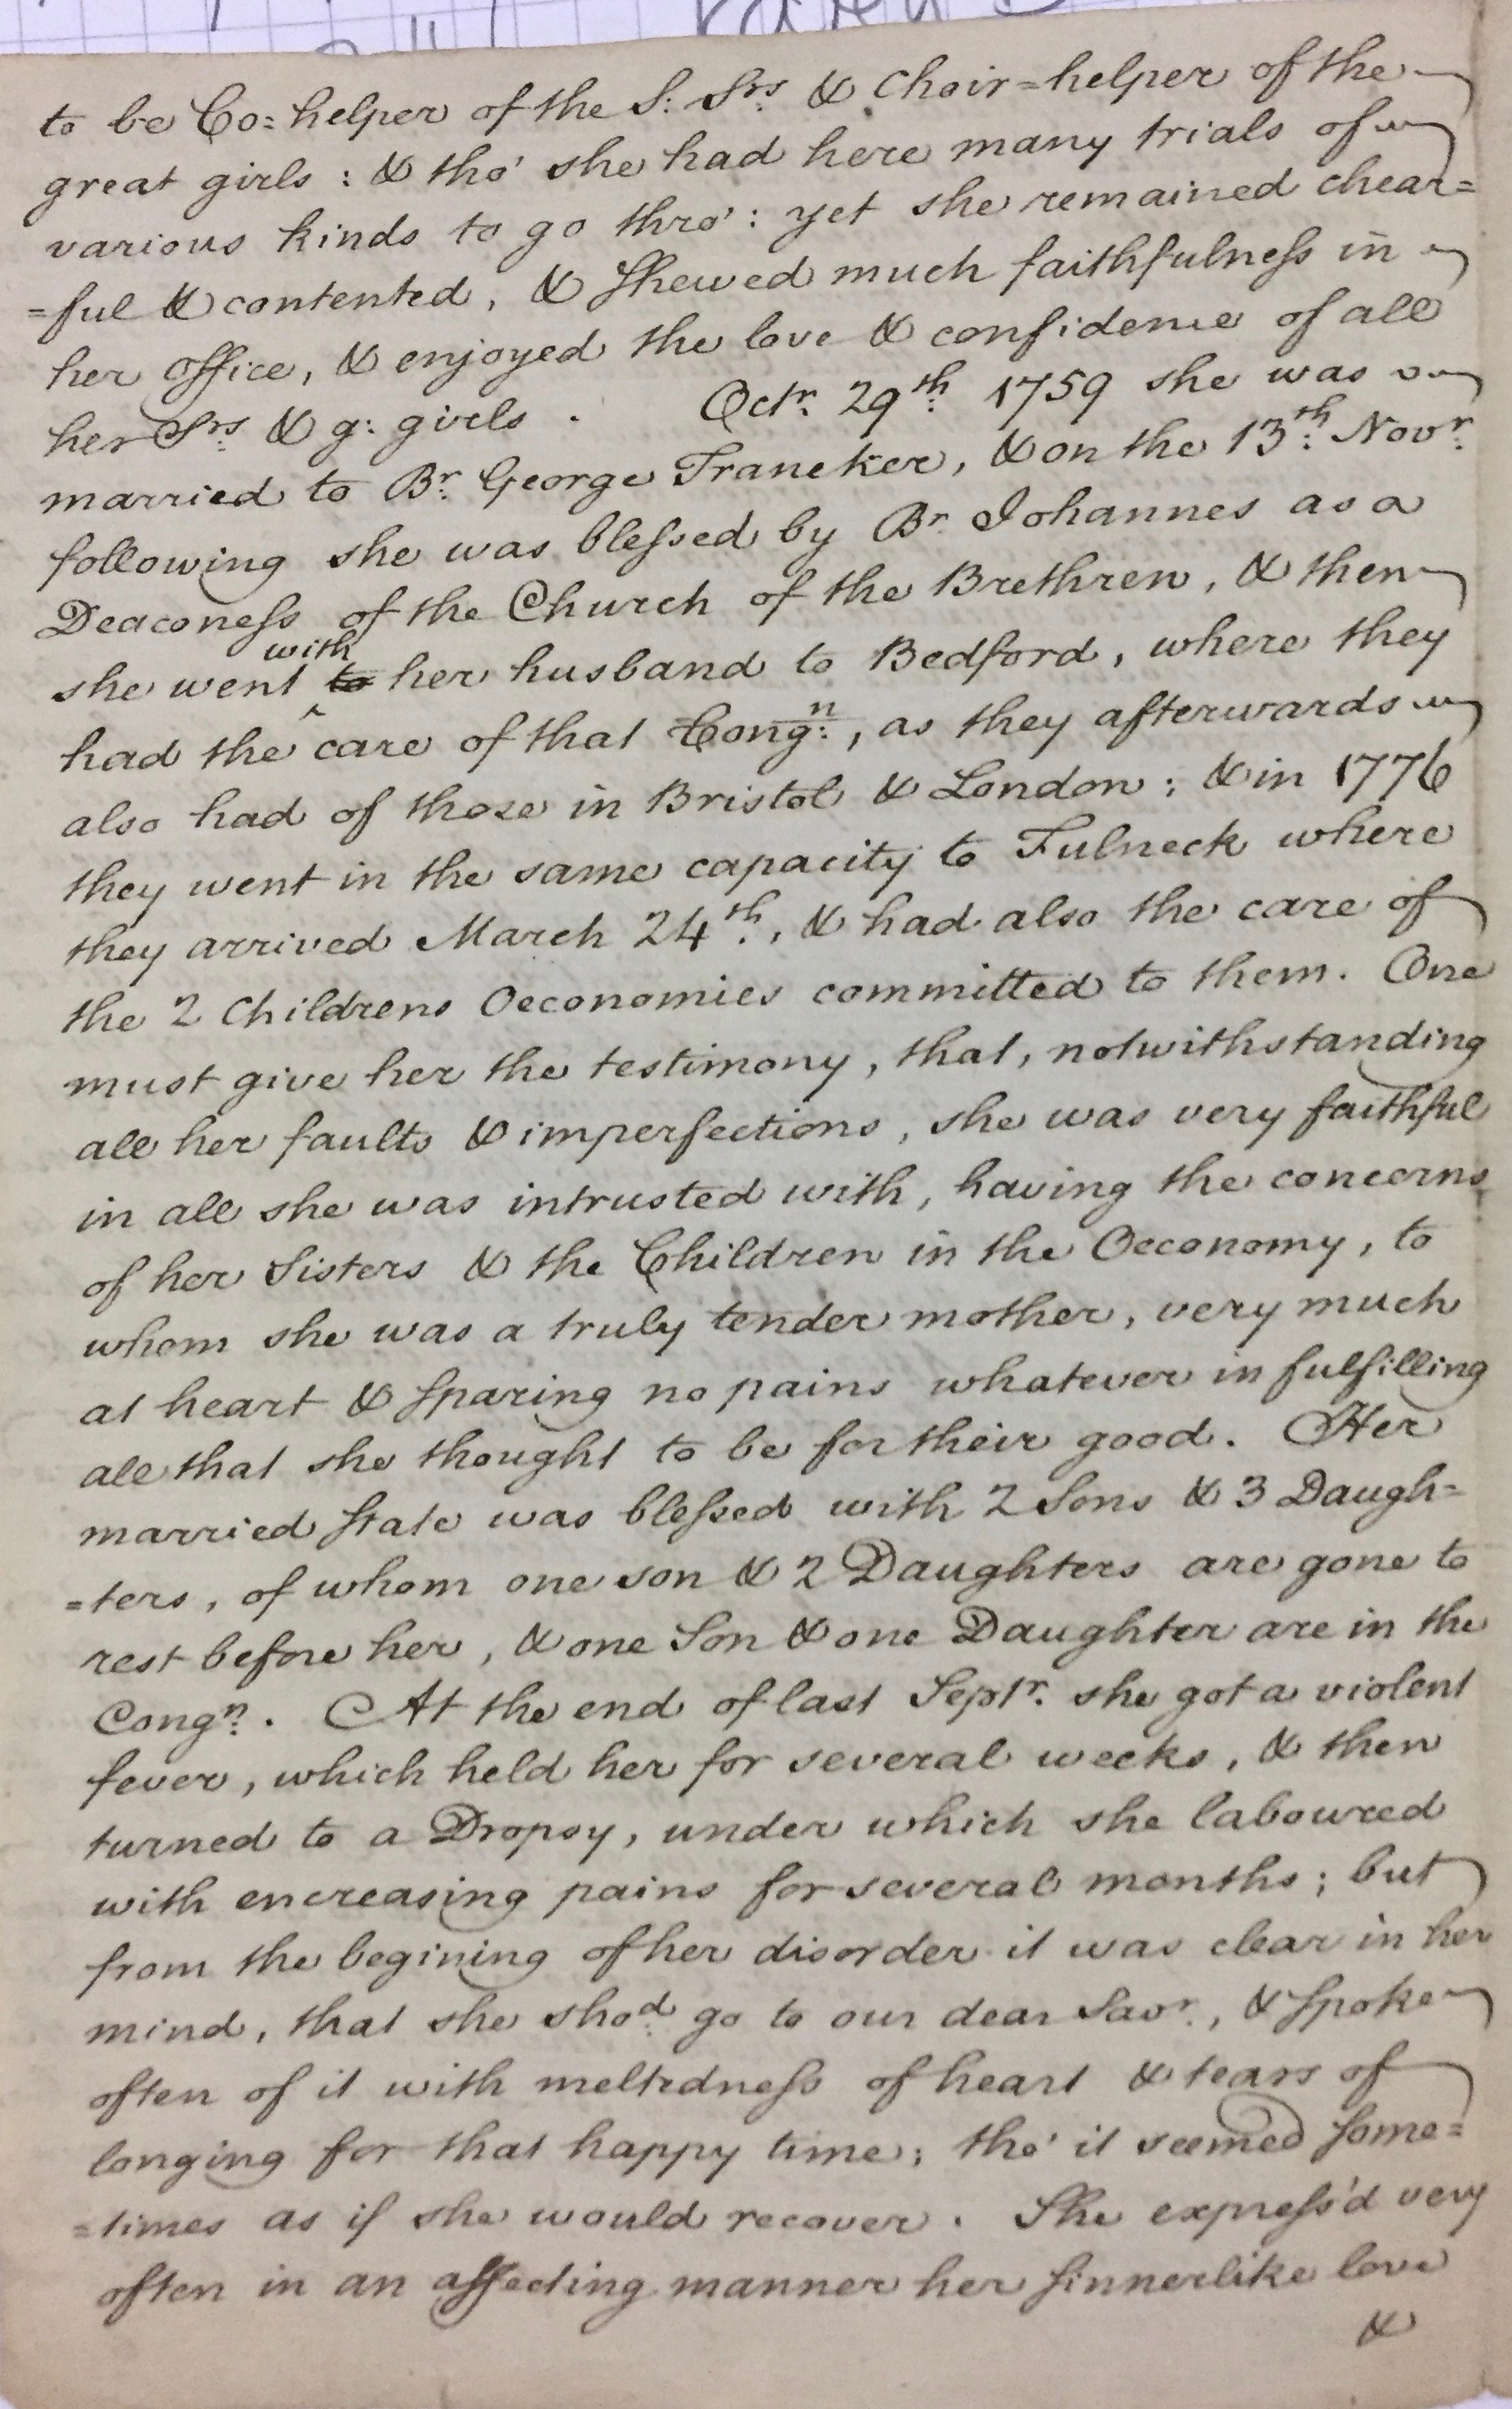 to be Co=helper of the S: Srs: & Choir=helper of the
great girls : & tho' she had here many trials of
various kinds to go thro': yet she remained chear=
=ful & contented, & shewed much faithfulness in
her office, & enjoyed the love & confidence of all
her Srs: & g: girls . Octr: 29th: 1759 she was
married to Br: George Traneker, & on the 13th: Novr:
following she was blessed by Br. Johannes as a
Deaconess of the Church of the Brethren, & then
she went with to her husband to Bedford, where they
had the care of that Congn:, as they afterwards
also had of those in Bristol & London; & in 1776
they went in the same capacity to Fulneck where
they arrived March 24th:, & had also the care of
the 2 Childrens Oeconomies committed to them. One
must give her the testimony, that, notwithstanding
all her faults & imperfections, she was very faithful
in all she was intrusted with, having the concerns
of her Sisters & the Children in the Oeconomy, to
whom she was a truly tender mother, very much
at heart & sparing no pains whatever in fulfilling
all that she thought to be for their good. Her
married state was blessed with 2 Sons & 3 Daugh=
=ters, of whom one son & 2 Daughters are gone to
rest before her, & one Son & one Daughter are in the
Congn: . At the end of last Septr. she got a violent
fever, which held her for several weeks, & then
turned to a Dropsy, under which she laboured
with encreasing pains for several months; but
from the begining of her disorder it was clear in her
mind, that she shod: go to our dear Savr., & spoke
often of it with meltedness of heart & tears of
longing for that happy time; tho' it seemed some=
=times as if she would recover. She express'd very
often in an affecting manner her sinnerlike love
&